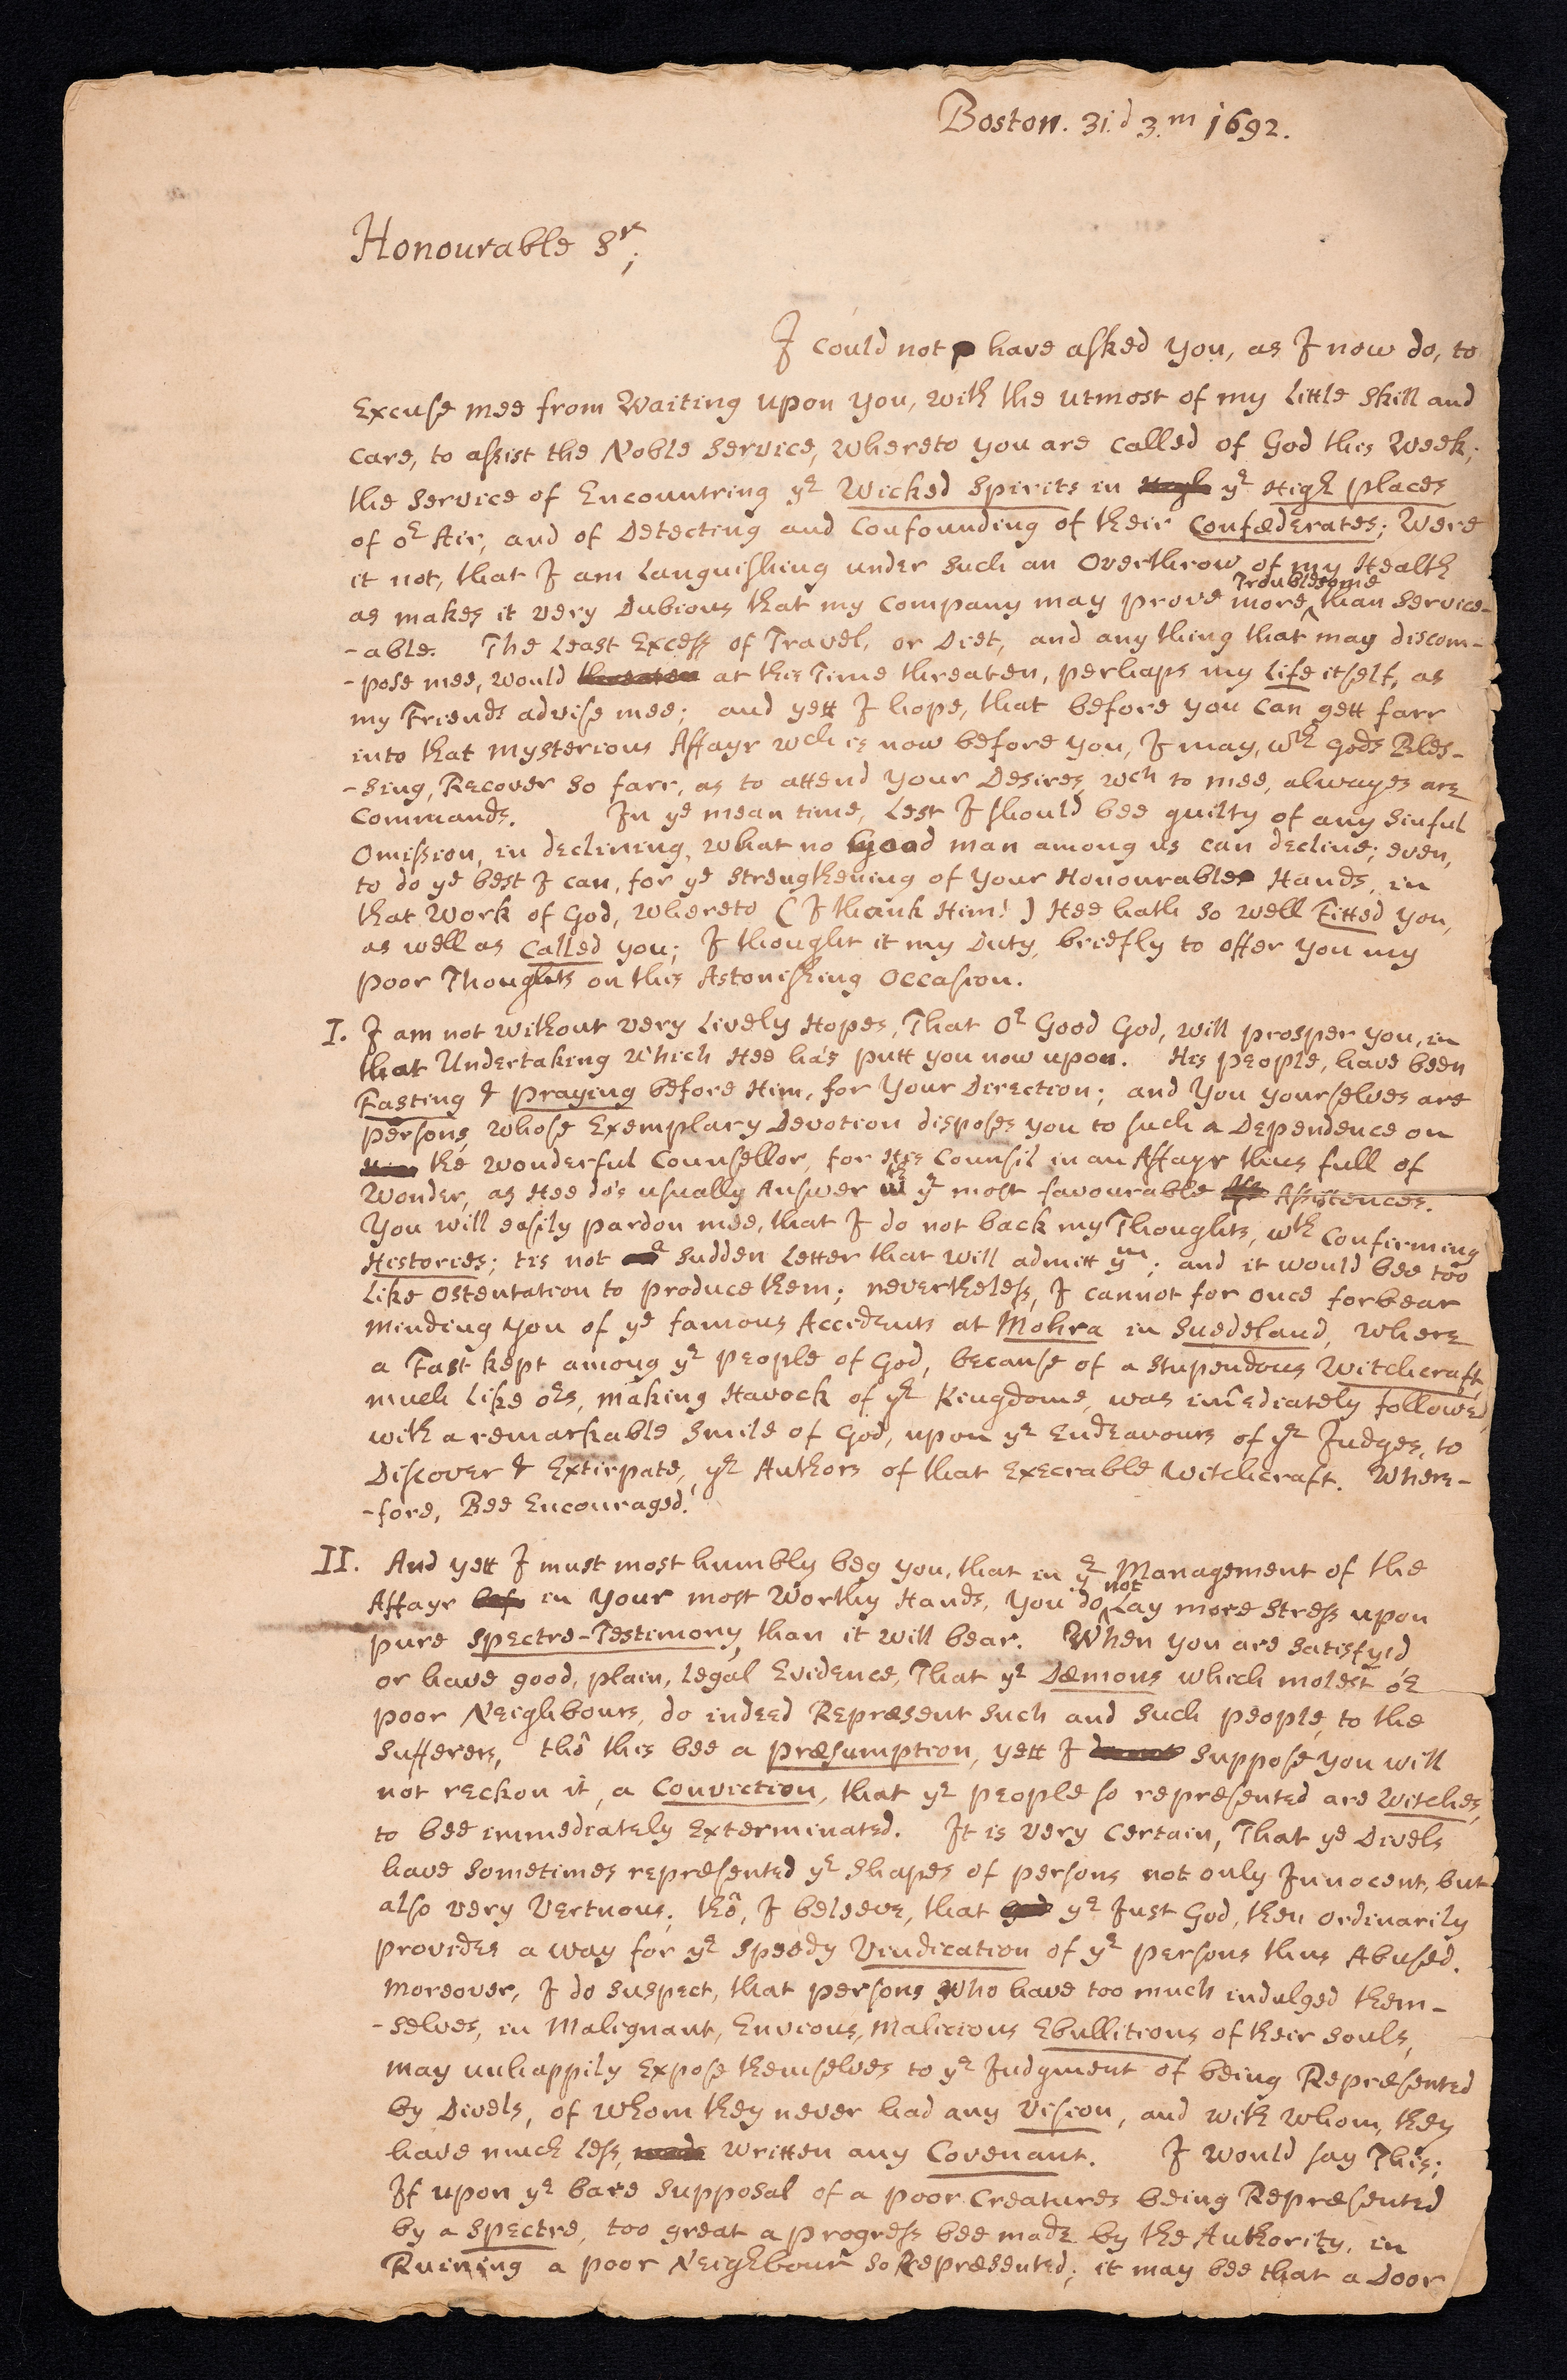 Boston. 31.d 3.m 1692.
Honourable Sr;
I could not have asked you, as I now do, to
Excuse mee from Waiting upon you, with the utmost of my Little Skill and
Care, to assist the Noble Service, whereto you are called of God this Week;
the Service of Encountring ye Wicked Spirits in ye High places
of or Air, and of Detecting and Confounding of their Confæderates; Were
it not, that I am Languishing under such an Overthrow of my Health
as makes it very Dubious that my company may prove more Troublesome than Service-
-able. The Least Excess of Travel, or Diet, and any thing that may discom-
-pose mee, would threaten at this Time threaten, perhaps my Life itself, as
my Friends advise mee; and yett I hope, that before you can gett farr
into that mysterious Affayr wch is now before you, I may, wth gods Bles-
-sing, Recover so farr, as to attend your Desires, wch to mee, alwayes are
Commands. In ye mean time, Lest I should bee guilty of any Sinful
Omission, in declining, what no good man among us can decline; even,
to do ye best I can, for ye strengthening of your Honourable Hands, in
that Work of God, whereto (I thank Him!) Hee hath so well Fitted you,
as well as Called you; I thought it my Duty, briefly to offer you my
poor Thoughts on this Astonishing Occasion.
I. I am not without very Lively Hopes, That or Good God, will prosper you, in
that Undertaking which Hee ha's putt you now upon. His people, have been
Fasting & praying before Him, for your Direction; and You yourselves are
persons, whose Exemplary Devotion disposes you to such a Dependence on
the Wonderful Counsellor, for His Counsil in an Affayr thus full of
Wonder, as Hee do's usually Answer wth ye most favourable Assistences.
You will easily pardon mee, that I do not back my Thoughts, wth Confirming
Histories; tis not a sudden Letter that will admitt ym; and it would bee too
Like Ostentation to produce them; nevertheless, I cannot for once forbear
minding you of ye famous Accidents at Mohra in Suedeland, where
a Fast kept among ye people of God, because of a stupendous Witchcraft,
much Like ors, making Havock of ye Kingdome, was im̄ediately followed,
with a remarkable Smile of God, upon ye Endeavours of ye Judges, to
Discover & Extirpate, ye Authors of that Execrable Witchcraft. Where-
-fore, Bee Encouraged!
II. And yett I must most humbly beg you, that in ye Management of the
Affayr in your most Worthy Hands, you do not Lay more Stress upon
pure Spectre-Testimony, than it will bear. When you are satisfyed
or have good, plain, Legal Evidence, That ye Dæmons which molest or
poor Neighbours, do indeed Repræsent such and such people, to the
Sufferers, thô this bee a præsumption, yett I suppose you will
not reckon it, a Conviction, that ye people so repræsented are Witches,
to bee immediately Exterminated. It is very certain, That ye Divels
have sometimes repræsented ye Shapes of persons not only Innocent, but
also very Vertuous; thô, I beleeve, that ye Just God, then ordinarily
provides a way for ye speedy Vindication of ye persons thus Abused.
Moreover, I do suspect, that persons who have too much indulged them-
-selves, in Malignant, Envious, Malicious Ebullitions of their Souls,
may unhappily expose themselves to ye Judgment of being Repræsented
by Divels, of whom they never had any vision, and with whom, they
have much Less, written any Covenant. I would say This;
If upon ye bare supposal of a poor Creatures being Repræsented
by a Spectre, too great a progress bee made by the Authority, in
Ruining a poor Neighbour so Repræsented; it may bee that a Door